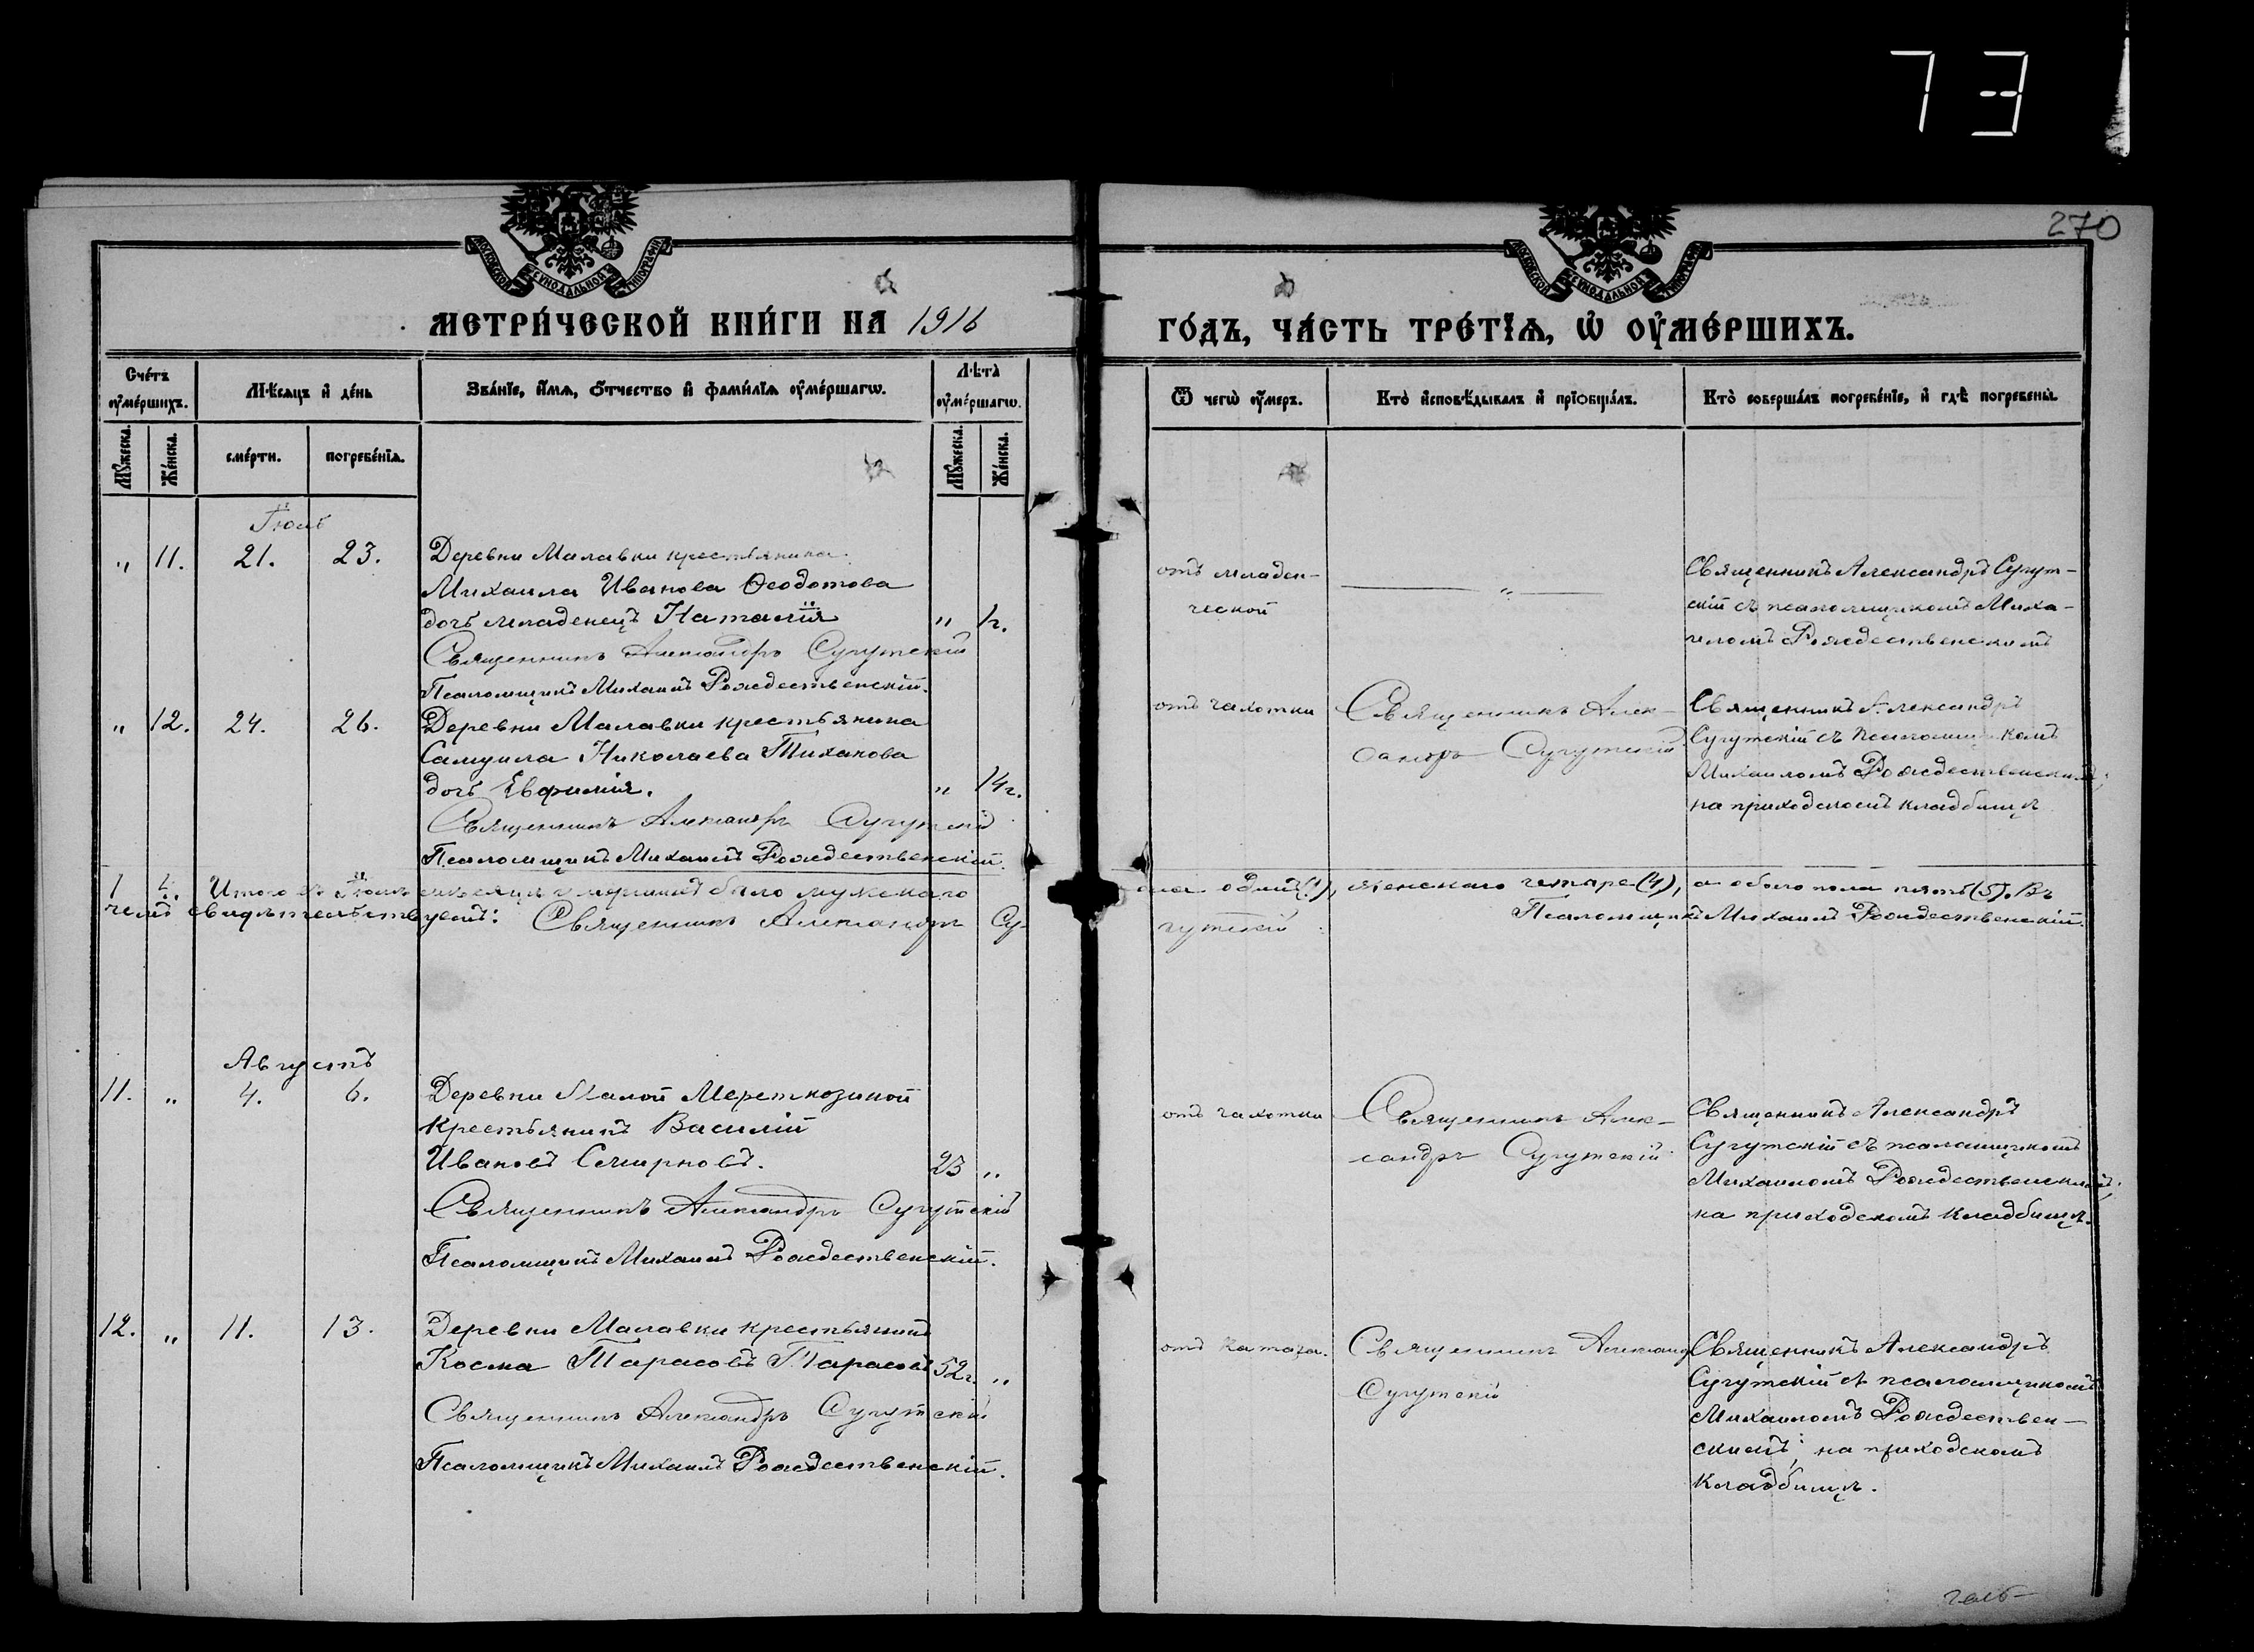 73
270
МОСКОВСКОЙ СѴНОДАЛЬНОЙ ТИПОГРАФІИ
МОСКОВСКОЙ СѴНОДАЛЬНОЙ ТИПОГРАФІИ
МЕТРИ́ЧЕСКОЙ КНИ́ГИ НА 1916
ГО́ДЪ, ЧА́СТЬ ТРЕ́ТЇѦ, Ѡ҆ ОУ҆МЕ́РШИХЪ.
Сче́тъ оу҆ме́ршихъ.
Мѣ́сяцъ и҆ де́нь
Зва́нїе, и҆́мѧ, ѻ҆́тчество и҆ фами́лїѧ оу҆ме́ршагѡ.
Лѣ́та̀ оу҆ме́ршагѡ.
Ѿ чегѡ̀ оу҆́меръ.
Кто̀ и҆сповѣ́дывалъ и҆ прїѻбща́лъ.
Кто̀ соверша́лъ погребе́нїе, и҆ гдѣ̀ погребены̀.
Мꙋ́жеска.
Же́нска.
сме́рти.
погребе́нїѧ.
Мꙋ́жеска.
Же́нска.
Іюль
" 11. 21. 23. Деревни Малавки крестьянина
Михаила Иванова Ѳеодотова
дочь младенецъ Наталія " 1г.
Священникъ Александръ Сугутскій
Псаломщикъ Михаилъ Рождественскій.
отъ младен-
ческой
"
Священникъ Александръ Сугут-
скій съ псаломщикомъ Миха-
иломъ Рождественскимъ
" 12. 24. 26. Деревни Малавки крестьянина
Самуила Николаева Тиханова
дочь Евфимія. " 14г.
Священникъ Александръ Сугутскій
Псаломщикъ Михаилъ Рождественскій.
отъ чахотки
Священникъ Алек-
сандръ Сугутскій.
Священникъ Александръ
Сугутскій съ псаломщикомъ
Михаиломъ Рождественскимъ;
на приходскомъ кладбищѣ
1 4. Итого въ Іюлѣ мѣсяцѣ умершихъ было мужескаго пола одинъ (1), женскаго четыре (4), а обоего пола пять (5). Въ
чемъ свидѣтельствуемъ: Священникъ Александръ Су-
гутскій
Псаломщикъ Михаилъ Рождественскій.
Августъ
11. " 4. 6. Деревни Малой Мереткозиной
крестьянинъ Василій
Ивановъ Смирновъ. 23 "
Священникъ Александръ Сугутскій
Псаломщикъ Михаилъ Рождественскій.
отъ чахотки
Священникъ Алек-
сандръ Сугутскій.
Священникъ Александръ
Сугутскій съ псаломщикомъ
Михаиломъ Рождественскимъ;
на приходскомъ кладбищѣ.
12. " 11. 13. Деревни Малавки крестьянинъ
Косма Тарасовъ Тарасовъ 52г. "
Священникъ Александръ Сугутскій
Псаломщикъ Михаилъ Рождественскій.
отъ катара.
Священникъ Александ
Сугутскій
Священникъ Александръ
Сугутскій съ псаломщикомъ
Михаиломъ Рождествен-
скимъ; на приходскомъ
кладбищѣ.